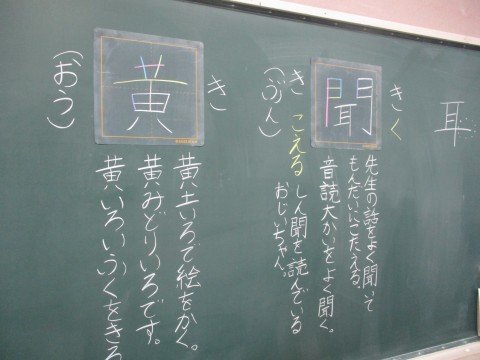 耳
きく
聞
きこえる
(ぶん)
先生の話をよく聞いて
もんだいにこたえる、
音読大かいをよく聞く。
しん聞を読んでいる
おじいちゃん、
き
黄
(おう)
黄土いろで絵をかく。
黄みどりいろです。
黄いろいふくをきる